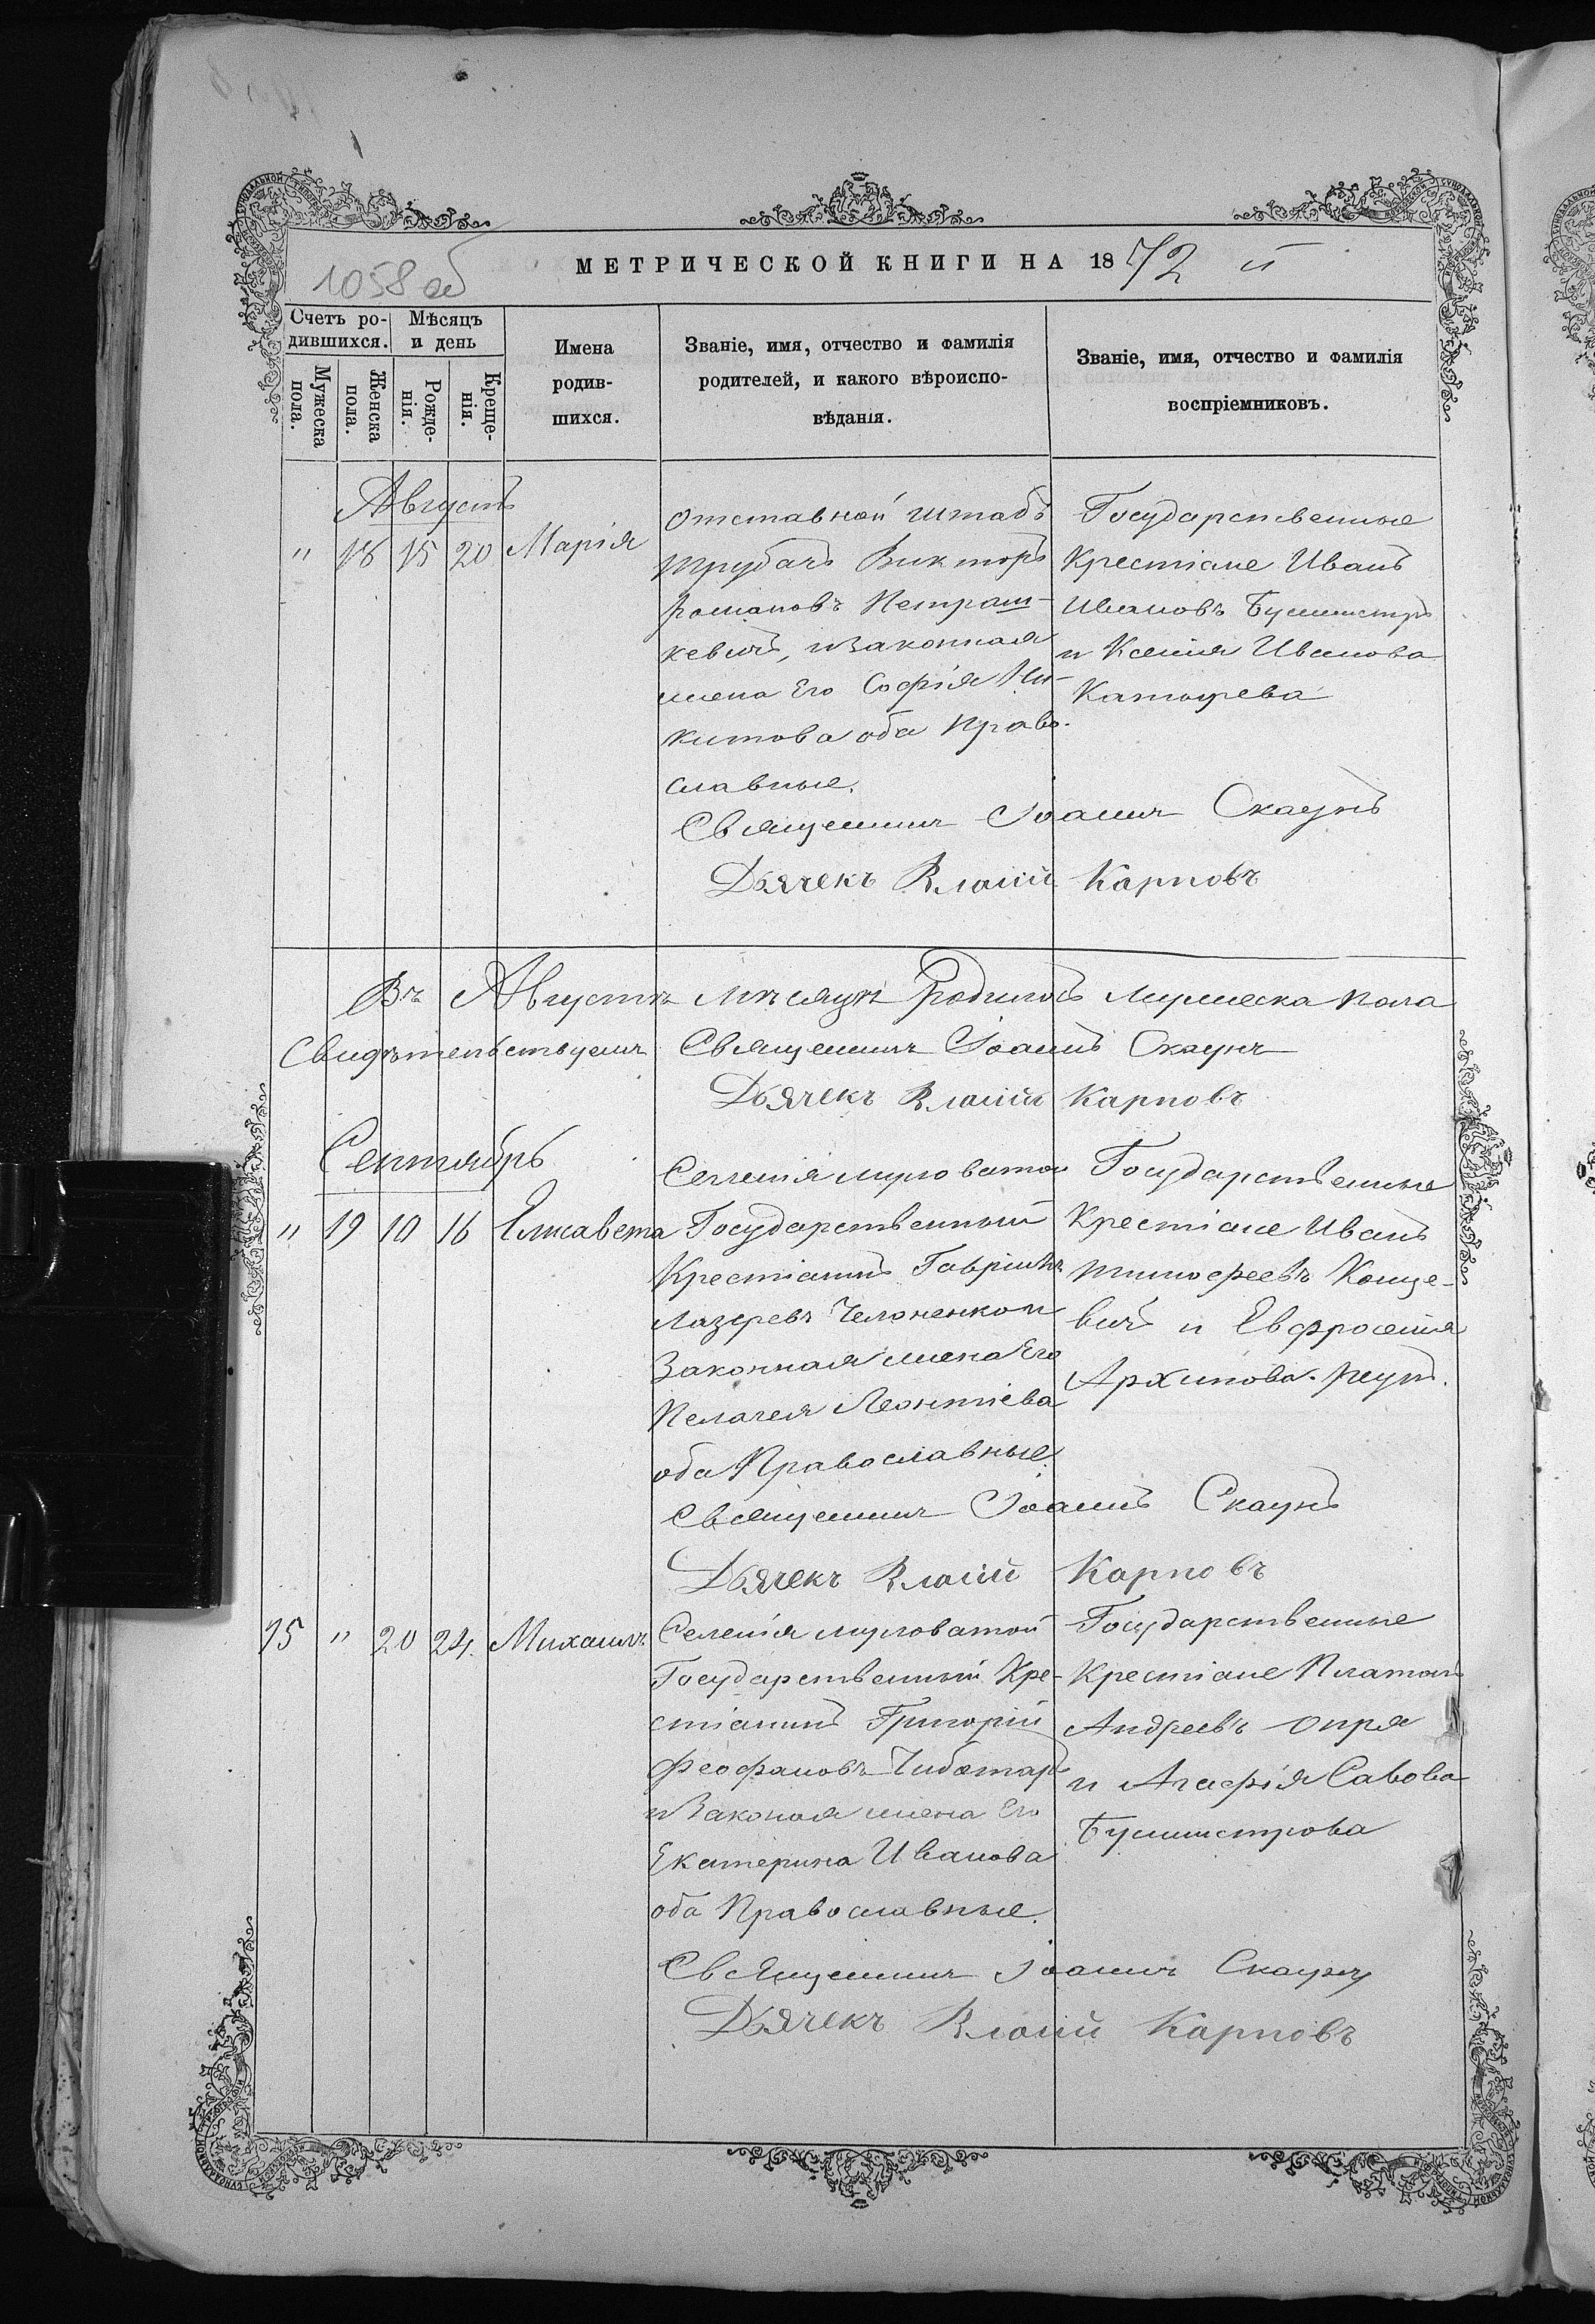 1058 об
МЕТРИЧЕСКОЙ КНИГИ НА 1872 й
Счетъ ро-
дившихся.
Мѣсяцъ
и день
Мужеска
пола.
Женска
пола.
Рожде-
нія.
Креще-
нія.
Имена
родив-
шихся.
Званіе, имя, отчество и фамилія
родителей, и какого вѣроиспо-
вѣданія.
Званіе, имя, отчество и фамилія
воспріемниковъ.
Августъ
" 18 15 20 Марія
Отставной штабъ
трубачъ Викторъ
Романовъ Петраш-
кевичъ, и Законная
жена Его Софія Ни-
китова оба Право-
славные.
Государственные
Крестіане Иванъ
Ивановъ Бушмистръ
и Ксенія Иванова
Священникъ Іоаннъ Скаунъ
Дьячекъ Власій Карповъ
Въ Августѣ мѣсяцѣ родилось мужеска пола
Свидѣтельствуемъ Священникъ Іоаннъ Скаунъ
Дьячекъ Власій Карповъ
Сентябрь
" 19 10 16 Елисавета
Селенія
Государственный
Крестіанинъ Гавріилъ
Лазаревъ
Законная жена Его
Пелагея Леонтіева
оба Православные.
Государственные
Крестіане Иванъ
Тимофеевъ Коще-
вичъ и Евфросинія
Архипова Реутъ.
Священникъ Іоаннъ Скаунъ
Дьячекъ Власій Карповъ
15 " 20 24. Михаилъ
Селенія
Государственный Кре-
стіанинъ Григорій
Феофановъ Чиботарь
и Законая жена Его
Екатерина Иванова
оба Православные.
Государственные
Крестіане Платонъ
Андреевъ Опря
и Агафія Савова
Бушмистрова
Священникъ Іоаннъ Скаунъ
Дьячекъ Власій Карповъ